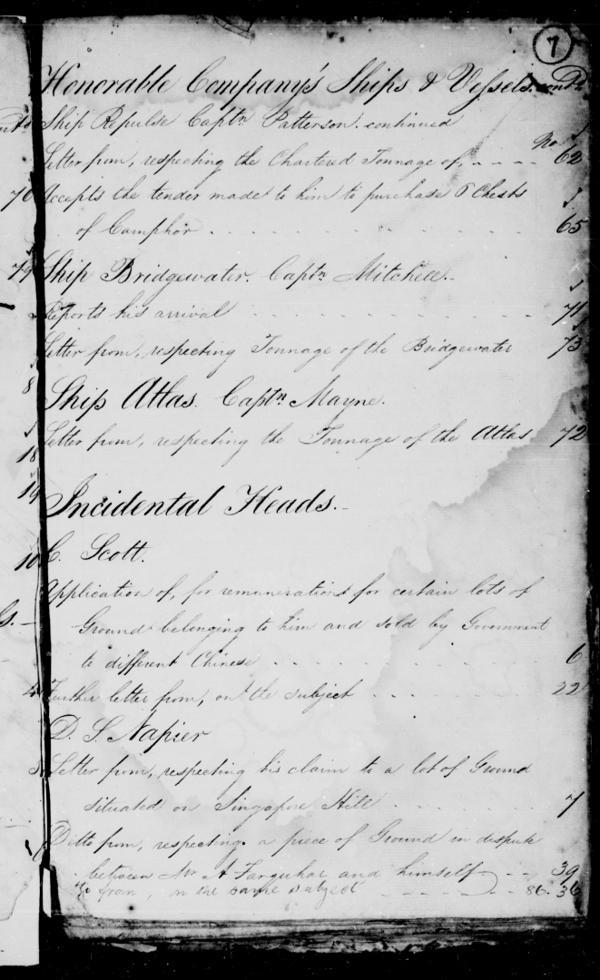 7
Honorable Company's Ships & Vessels. contd
Ship Repulse Captn Patterson. continued
No.
Letter from, respecting the Chartered Tonnage of, 62
Accepts the tender made to him to purchase 6 Chests
of Camphor 65
Ship Bridgewater. Captn Mitchell.
Reports his arrival 71
Letter from, respecting Tonnage of the Bridgewater 73
Ship Atlas. Captn Mayne.
Letter from, respecting the Tonnage of the Atlas 72
Incidental Heads.
C. Scott.
Application of, for remuneration for certain lots of
Ground belonging to him and sold by Government
to different Chinese 6
Further letter from, on the subject 22
D. S. Napier
Letter from, respecting his claim to a lot of Ground
situated on Singapore Hill 7
Ditto from, respecting a piece of Ground in dispute
between Mr A Farquhar and himself 39
Do from, on the same subject 86. 36